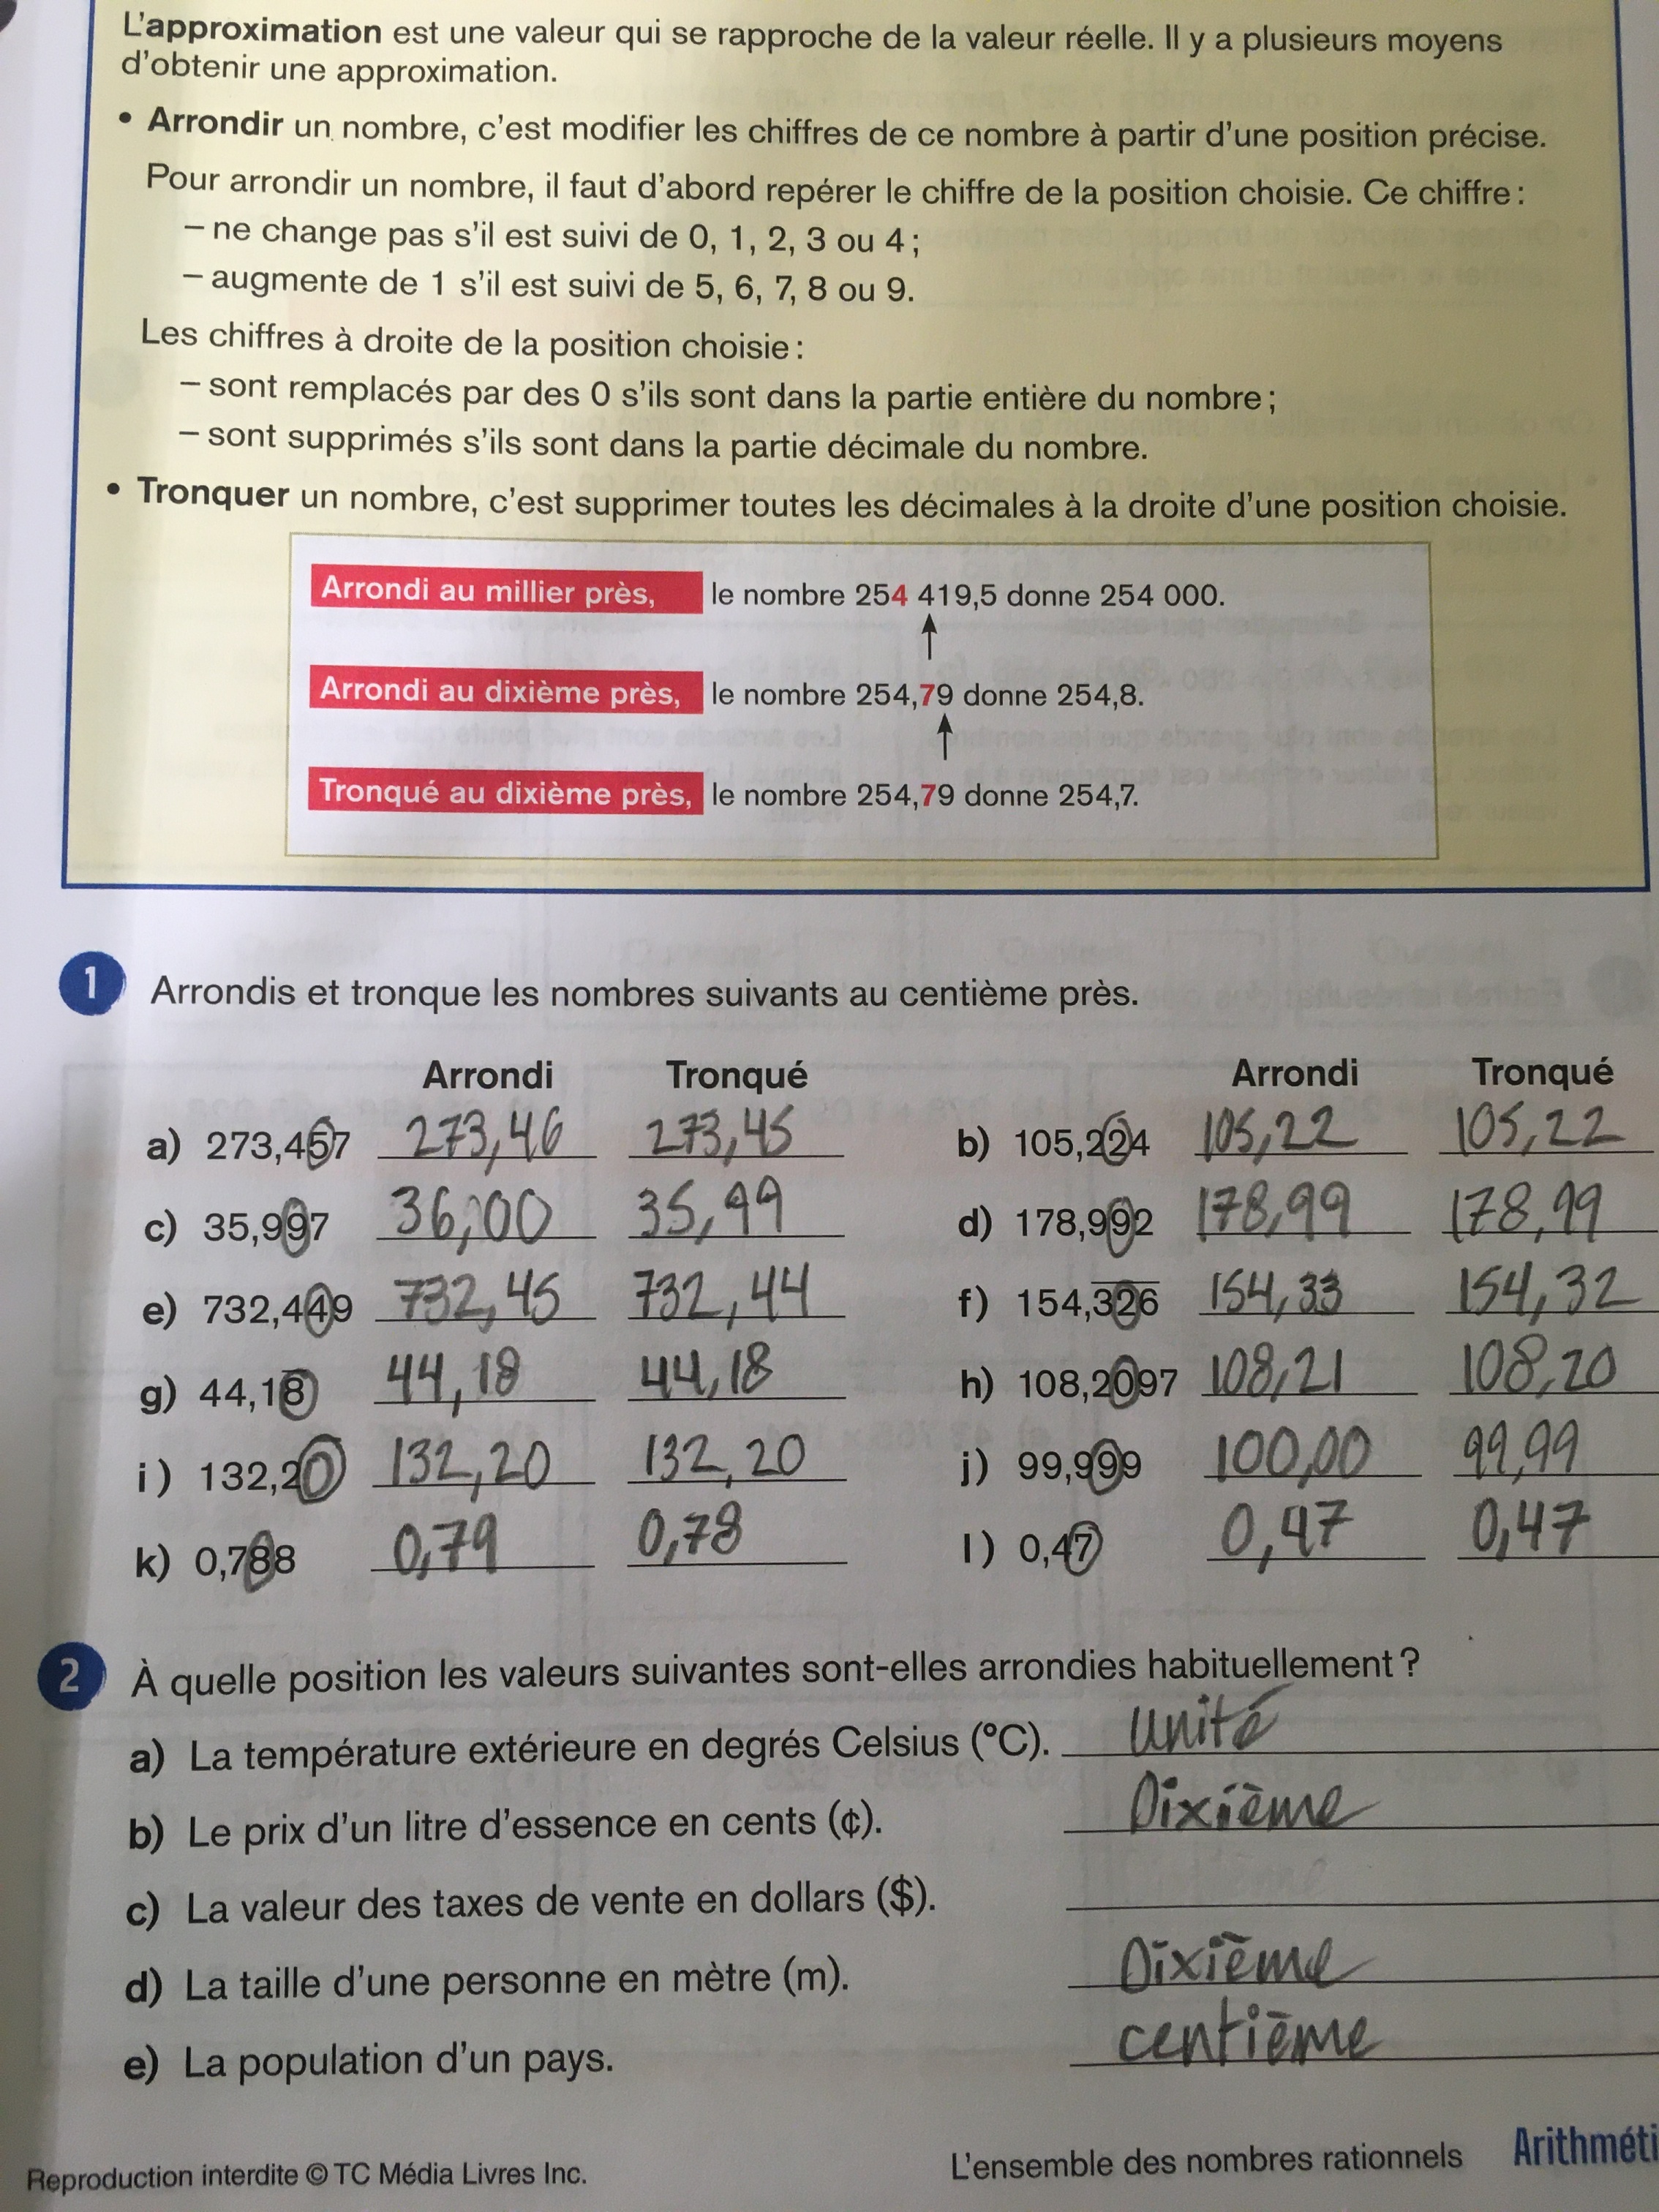 L'approximation est une valeur qui se rapproche de la valeur réelle. Il y a plusieurs moyens
d'obtenir une approximation.
• Arrondir un nombre, c'est modifier les chiffres de ce nombre à partir d'une position précise.
Pour arrondir un nombre, il faut d'abord repérer le chiffre de la position choisie. Ce chiffre :
– ne change pas s'il est suivi de 0, 1, 2, 3 ou 4 ;
– augmente de 1 s'il est suivi de 5, 6, 7, 8 ou 9.
Les chiffres à droite de la position choisie :
– sont remplacés par des 0 s'ils sont dans la partie entière du nombre ;
– sont supprimés s'ils sont dans la partie décimale du nombre.
• Tronquer un nombre, c'est supprimer toutes les décimales à la droite d'une position choisie.
Arrondi au millier près, le nombre 254 419,5 donne 254 000.
Arrondi au dixième près, le nombre 254,79 donne 254,8.
Tronqué au dixième près, le nombre 254,79 donne 254,7.
1 Arrondis et tronque les nombres suivants au centième près.
Arrondi Tronqué Arrondi Tronqué
a) 273,457 273,46 273,45 b) 105,224 105,22 105,22
c) 35,997 36,00 35,99 d) 178,992 178,99 178,99
e) 732,449 732,45 732,44 f) 154,3̅2̅6̅ 154,33 154,32
g) 44,18̅ 44,18 44,18 h) 108,2097 108,21 108,20
i) 132,20 132,20 132,20 j) 99,999 100,00 99,99
k) 0,788 0,79 0,78 l) 0,47 0,47 0,47
2 À quelle position les valeurs suivantes sont-elles arrondies habituellement ?
a) La température extérieure en degrés Celsius (°C). unité
b) Le prix d'un litre d'essence en cents (¢). Dixième
c) La valeur des taxes de vente en dollars ($).
d) La taille d'une personne en mètre (m). Dixième
e) La population d'un pays. centième
Reproduction interdite © TC Média Livres Inc. L'ensemble des nombres rationnels Arithméti